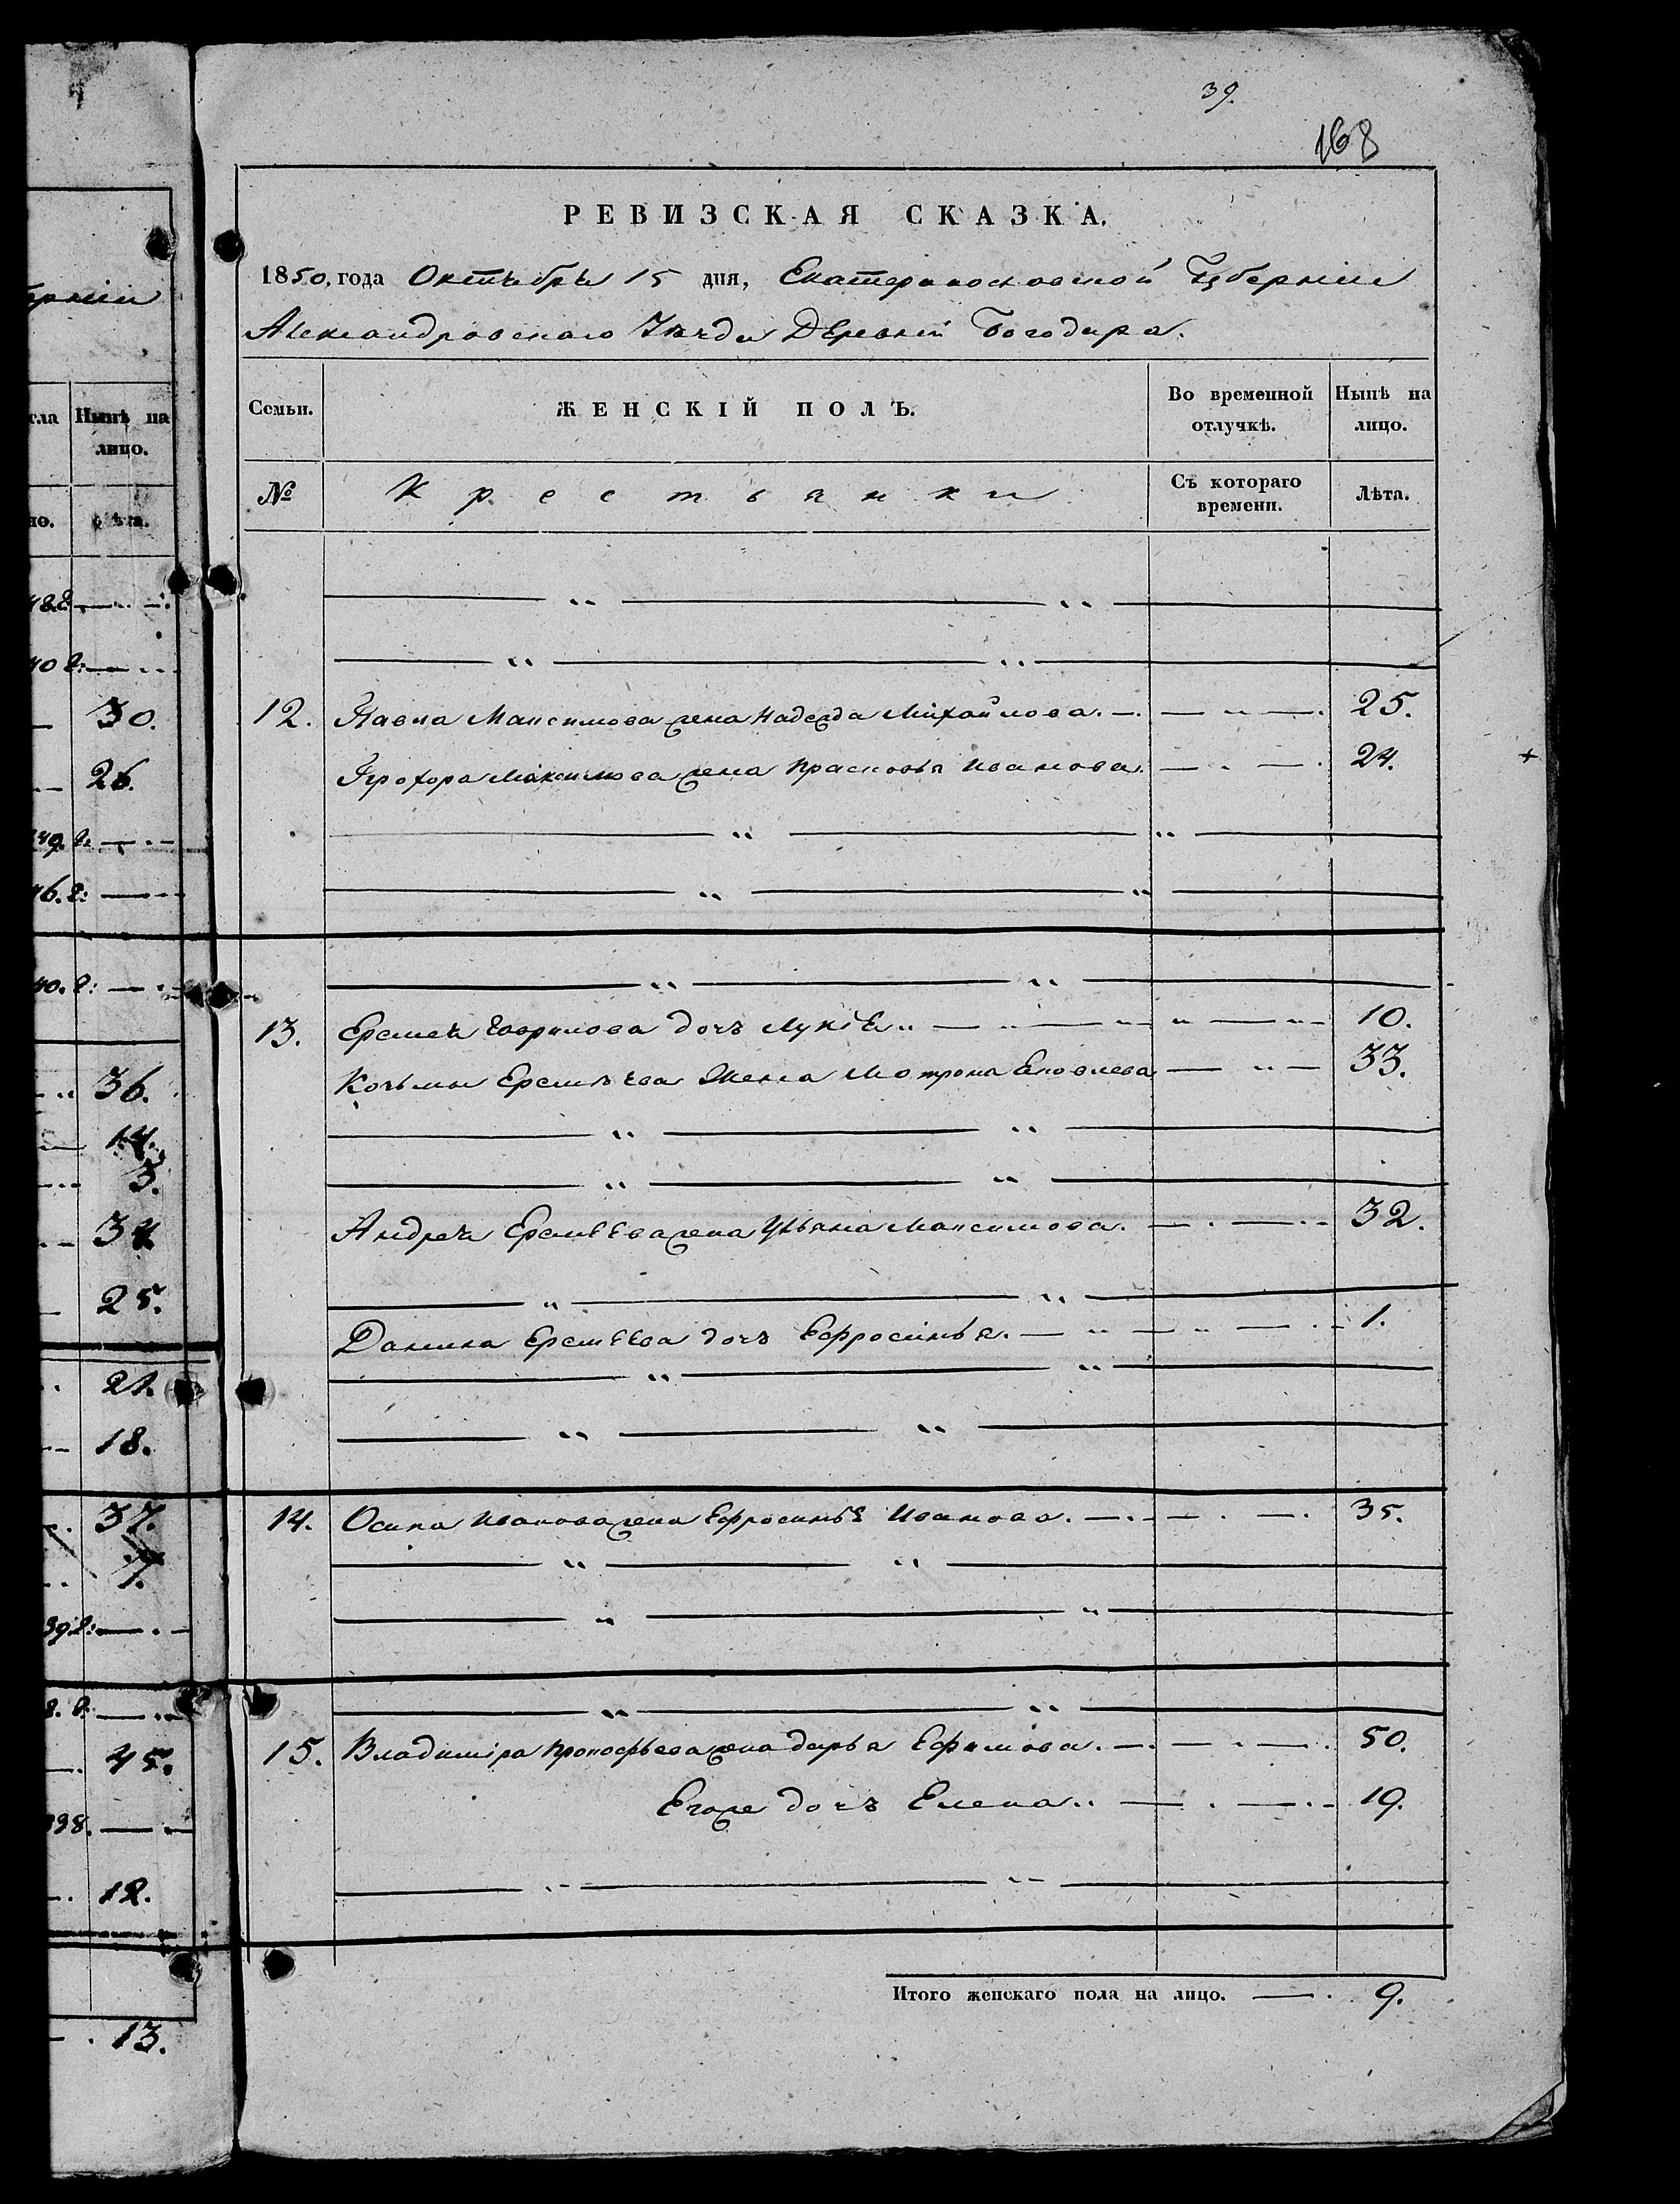 39.
168
РЕВИЗСКАЯ СКАЗКА.
1850, года Октября 15 дня, Екатеринославской Губерніи
Александровскаго Уѣзда Деревни Богодара.
Семьи. ЖЕНСКІЙ ПОЛЪ. Во временной отлучкѣ. Нынѣ на лицо.
№ Крестьянки Съ котораго времени. Лѣта.
12. Павла Максимова жена Надежда Михайлова. 25.
Прохора Максимова жена Прасковья Иванова. 24.
13. Еремея Гаврилова дочь Лукіея 10.
Козьмы Еремѣева Жена Мотрона Яковлева 33.
Андрея Еремѣева жена Ульяна Максимова. 32.
Данила Еремѣева дочь Ефросинья. 1.
14. Осипа Иванова жена Ефросинья Иванова. 35.
15. Владимира Прокофьева жена Дарья Ефимова. 50.
Егоже дочь Елена 19.
Итого женскаго пола на лицо. 9.
рніи
Нынѣ на
лицо.
30.
26.
36.
14.
3.
34
25.
21.
18.
37.
7.
45.
12.
13.